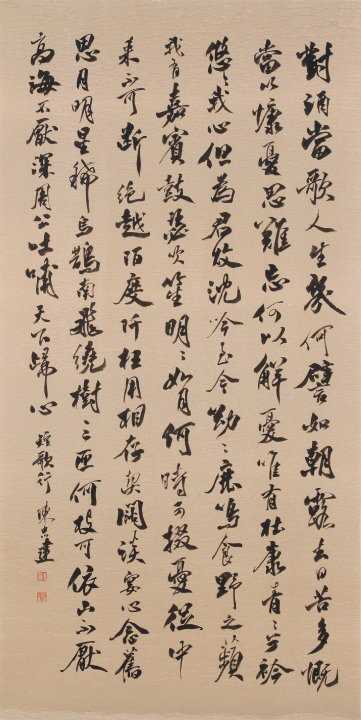 對酒當歌人生幾何譬如朝露去日苦多慨
當以慷憂思難忘何以解憂唯有杜康青〻子衿
悠〻我心但為君故沈吟至今呦〻鹿鳴食野之蘋
我有嘉賓鼓瑟吹笙明〻如月何時可掇憂從中
來不可斷絕越陌度阡枉用相存契闊談宴心念舊
思月明星稀烏鵲南飛繞樹三匝何枝可依山不厭
高海不厭深周公吐哺天下歸心 短歌行 陳忠建